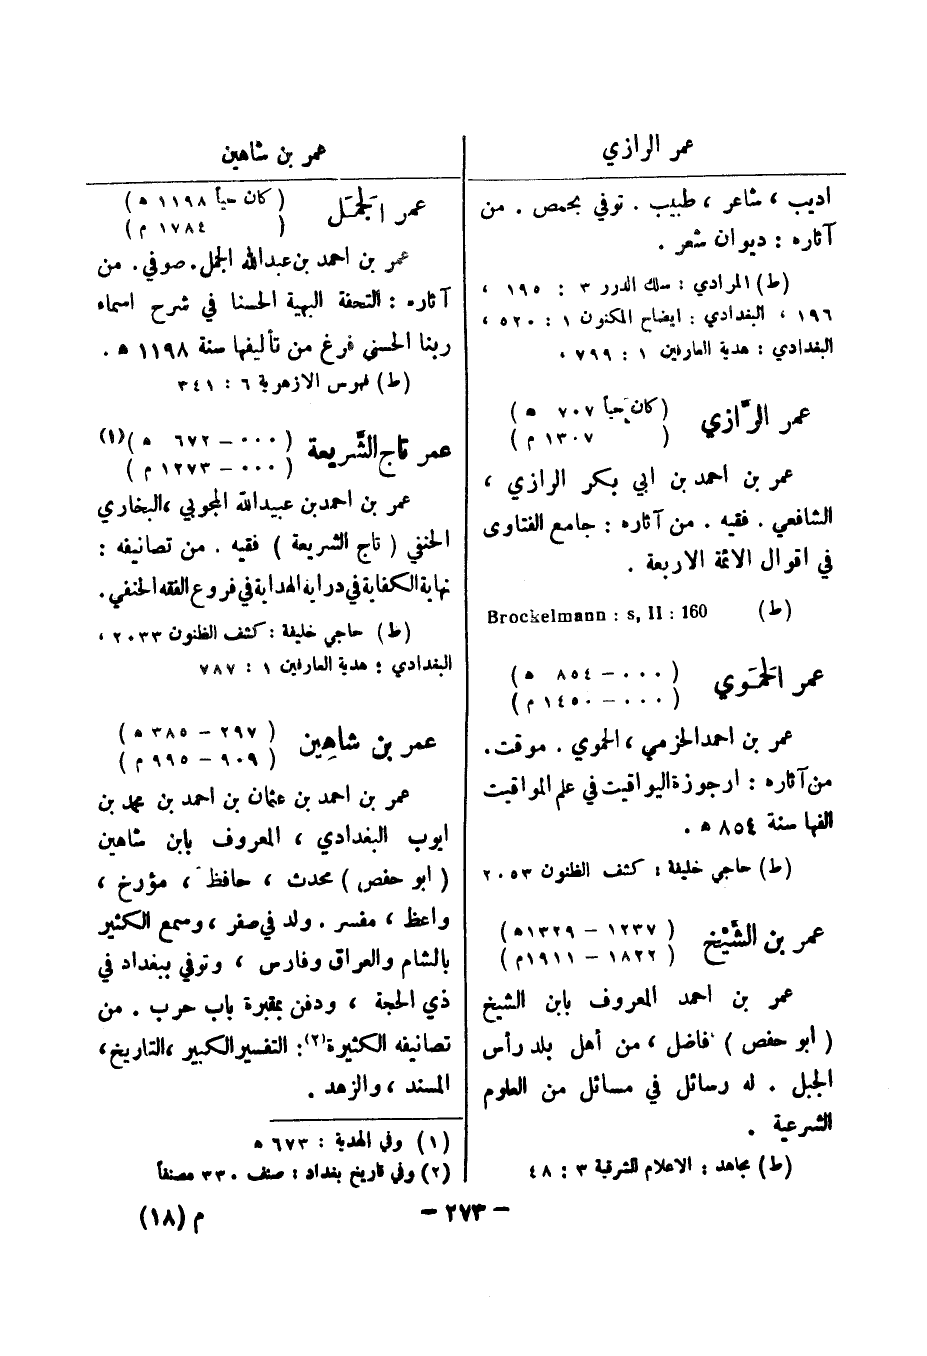 عمر الرازي
اديب ، شاعر ، طبيب . توفي بحمص . من
آثاره : ديوان شعر .
(ط) المرادي : سلك الدرر ٣ : ١٩٥ ،
١٩٦ ، البغدادي : ايضاح المكنون ١ : ٥٢٠ ،
البغدادي : هدية العارفين ١ : ٧٩٩ ،
عمر الرَّازي
(كان حياً ٧٠٧ ه)
( ١٣٠٧ م)
عمر بن احمد بن ابي بكر الرازي ،
الشافعي . فقيه . من آثاره : جامع الفتاوى
في اقوال الائمة الاربعة .
(ط) Brockelmann : s, II : 160
عمر الحَمَوي
(٠٠٠ – ٨٥٤ ه)
(٠٠٠ – ١٤٥٠ م)
عمر بن احمد الخزمي ، الحموي . موقت .
من آثاره : ارجوزة اليواقيت في علم المواقيت
الفها سنة ٨٥٤ ه .
(ط) حاجي خليفة : كشف الظنون ٢٠٥٣
عمر بن الشَّيْخ
(١٢٣٧ – ١٣٢٩ه)
(١٨٢٢ – ١٩١١م)
عمر بن احمد المعروف بابن الشيخ
(ابو حفص) فاضل ، من أهل بلد رأس
الجبل . له رسائل في مسائل من العلوم
الشرعية .
(ط) مجاهد : الاعلام الشرقية ٣ : ٤٨
عمر بن شاهين
عمر الجَمَل
(كان حياً ١١٩٨ ه)
( ١٧٨٤ م)
عمر بن احمد بن عبدالله الجمل . صوفي . من
آثاره : التحفة البهية الحسنا في شرح اسماء
ربنا الحسنى فرغ من تأليفها سنة ١١٩٨ ه .
(ط) فهرس الازهرية ٦ : ٣٤١
عمر تاج الشَّريعة
(٠٠٠ – ٦٧٢ ه)(١)
(٠٠٠ – ١٢٧٣ م)
عمر بن احمد بن عبيدالله المحبوبي ، البخاري
الحنفي ( تاج الشريعة ) فقيه . من تصانيفه :
نهاية الكفاية في دراية الهداية في فروع الفقه الحنفي .
(ط) حاجي خليفة : كشف الظنون ٢٠٣٣ ،
البغدادي : هدية العارفين ١ : ٧٨٧
عمر بن شاهِين
(٢٩٧ – ٣٨٥ ه)
(٩٠٩ – ٩٩٥ م)
عمر بن احمد بن عثمان بن احمد بن محمد بن
ايوب البغدادي ، المعروف بابن شاهين
(ابو حفص) محدث ، حافظ ، مؤرخ ،
واعظ ، مفسر . ولد في صفر ، وسمع الكثير
بالشام والعراق وفارس ، وتوفي ببغداد في
ذي الحجة ، ودفن بمقبرة باب حرب . من
تصانيفه الكثيرة(٢) : التفسير الكبير ، التاريخ ،
المسند ، والزهد .
(١) وفي الهدية : ٦٧٣ ه
(٢) وفي تاريخ بغداد : صنف ٣٣٠ مصنفاً
– ٢٧٣ –
م (١٨)